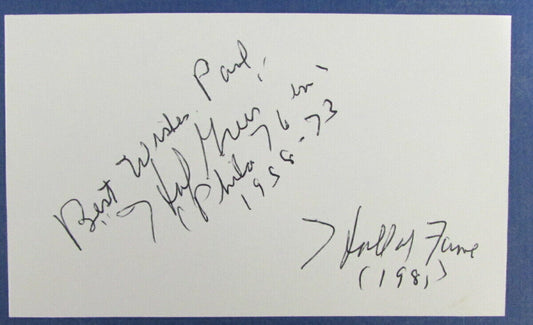 Best Wishes Paul,
Hal Greer
(Phila 76ers)
1958-73
Hall of Fame
(1981)